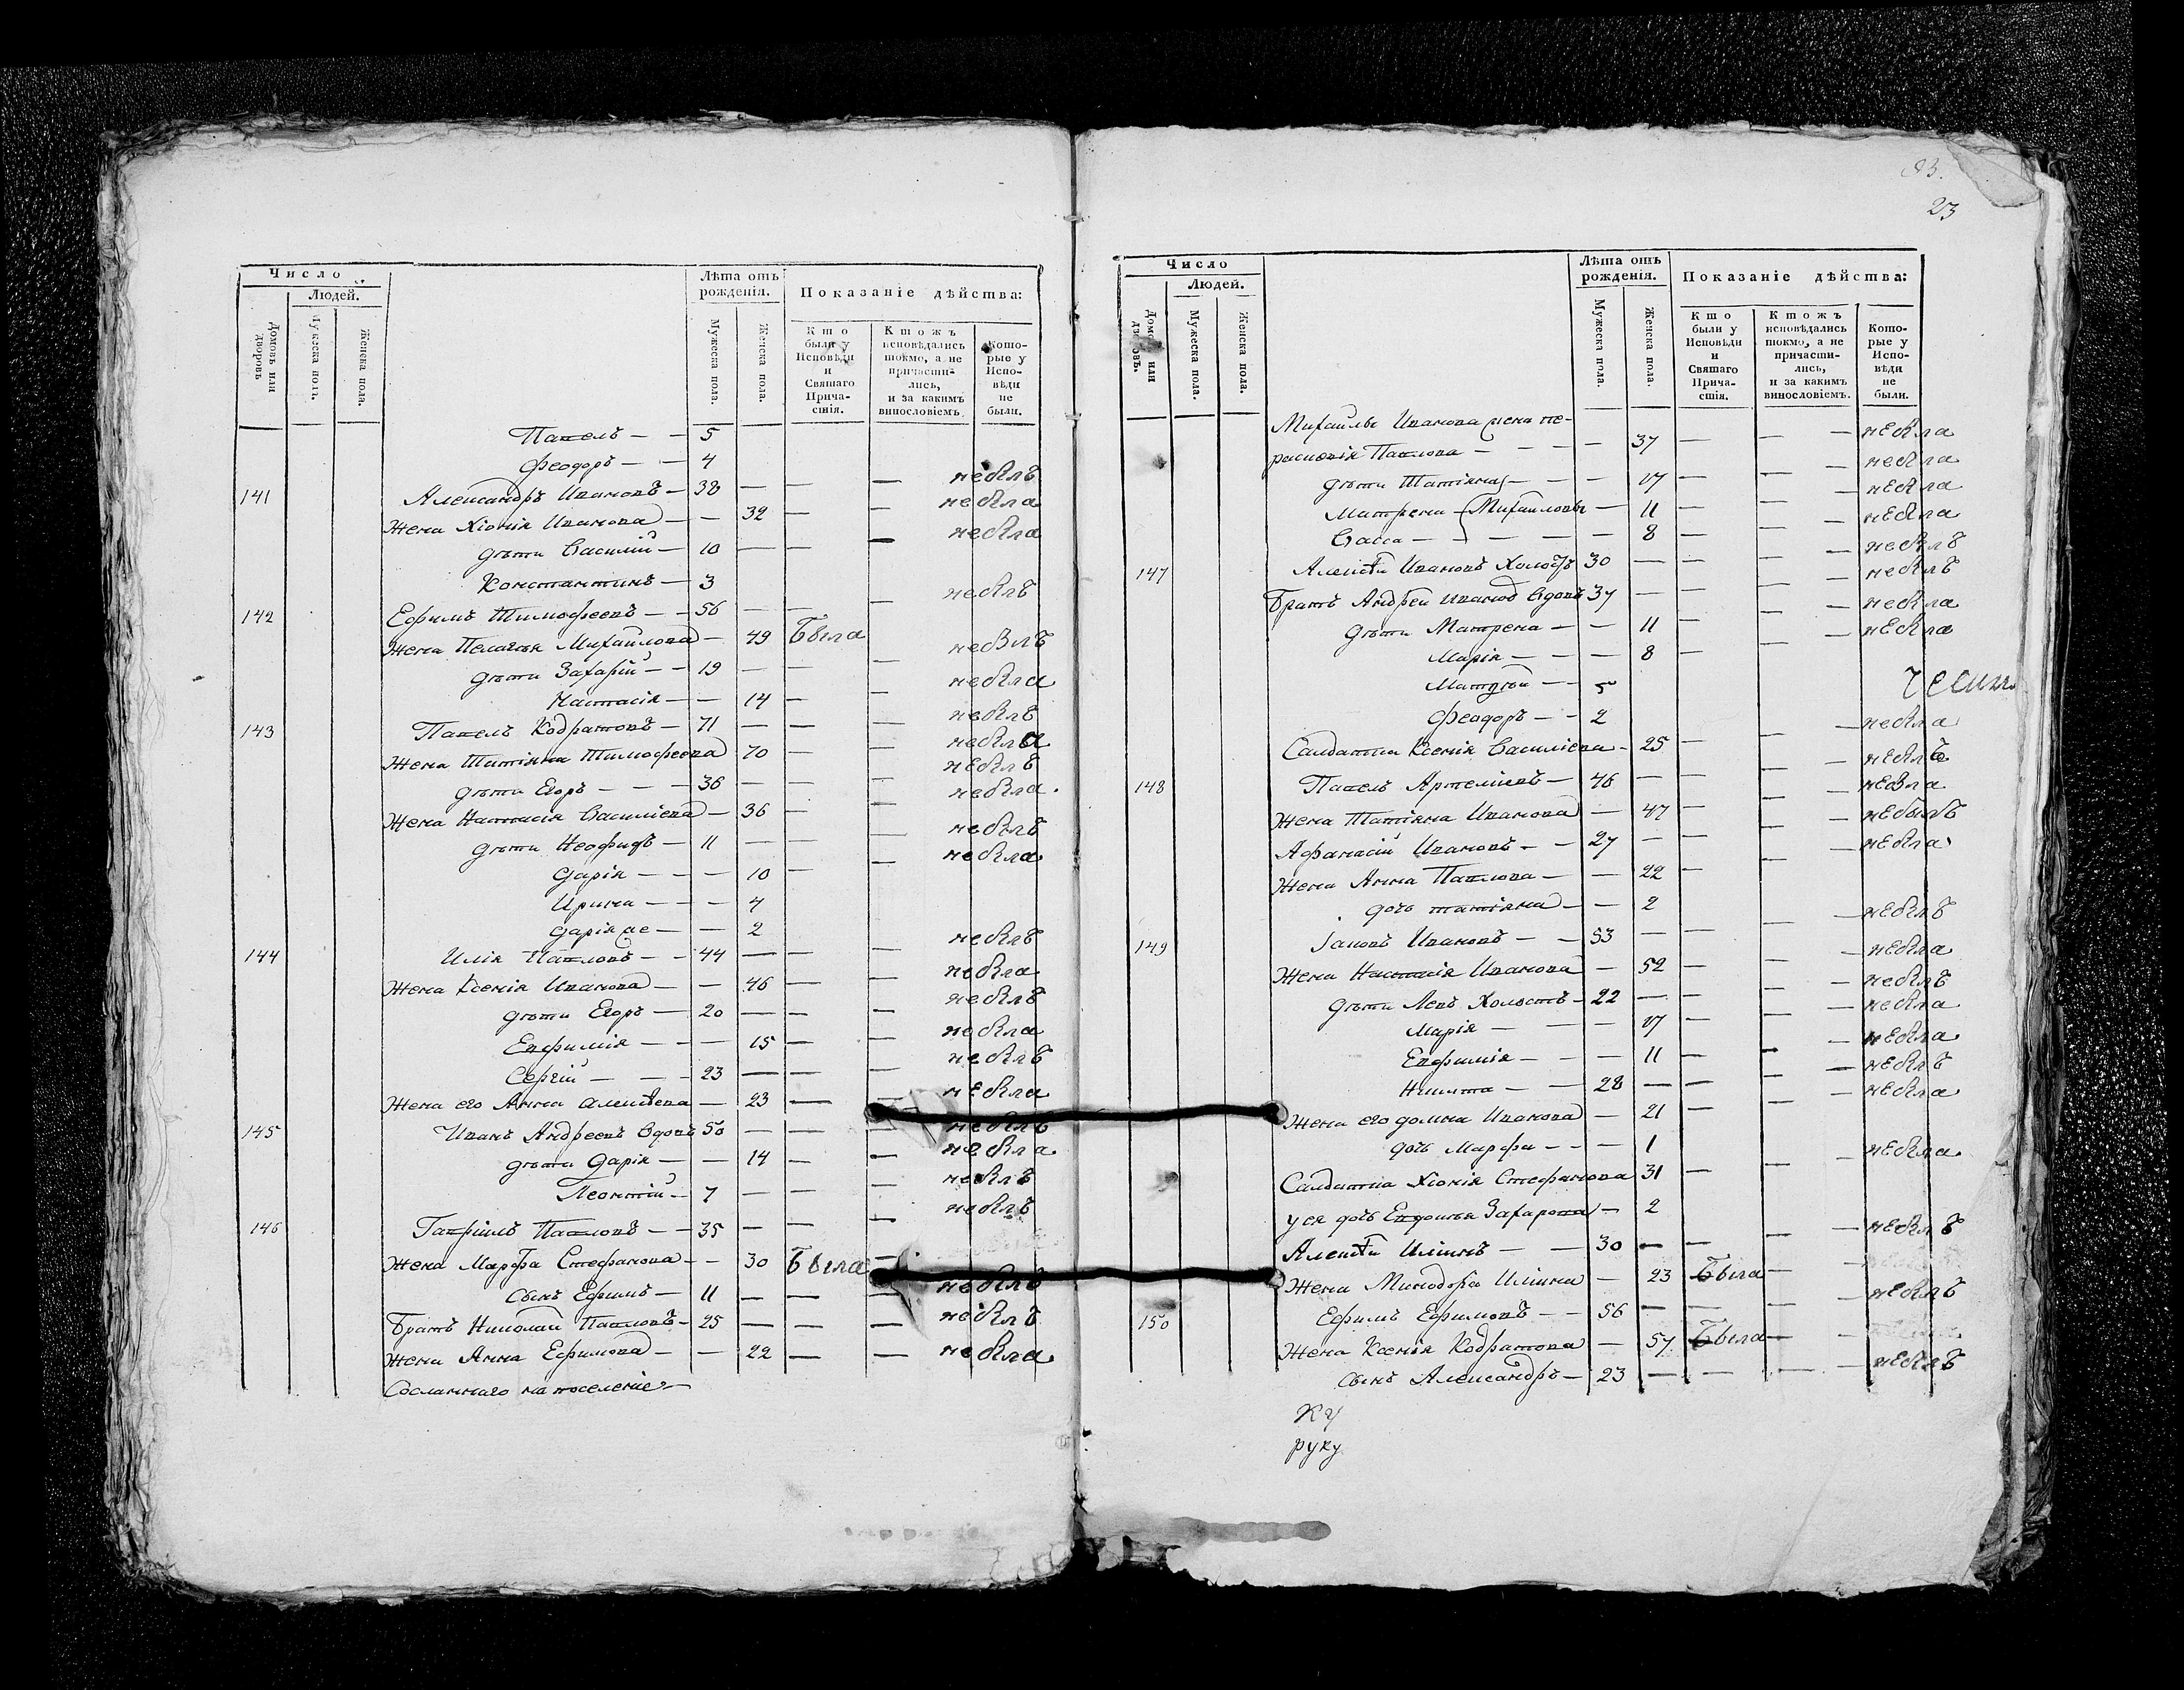 Число
Людей.
Домовъ или дворовъ
Мужеска пола.
Женска пола.
Лѣта отъ рожденія.
Мужеска пола.
Женска пола.
Показаніе дѣйства:
Кто были у Исповѣди и Святаго Причастія.
Ктожъ исповѣдались токмо, а не причастились, и за какимъ винословіемъ.
Которые у Исповѣди не были.
Павелъ — 5
Феодоръ — 4
141 Александръ Ивановъ — 38 — — — небылъ
Жена Хіонія Иванова — 32 — — небыла
дѣти Василій — 10 — — — небыла
Константинъ — 3
142 Ефимъ Тимофеевъ — 56 — — — небылъ
Жена Пелагѣя Михайлова — 49 Была
дѣти Захарій — 19 — — — небылъ
Настасія — 14 — — небыла
143 Павелъ Кодратовъ — 71 — — небылъ
Жена Татіяна Тимофеева 70 — — небыла
дѣти Егоръ — 36 — — небылъ
Жена Настасія Василіева — 36 — — небыла
дѣти Неофидъ — 11 — — — небылъ
Дарія — 10 — — небыла
Ирина — 4
Дарія же — 2
144 Илія Павловъ — 44 — — — небылъ
Жена Ксенія Иванова — 46 — — небыла
дѣти Егоръ — 20 — — — небылъ
Евфимія — 15 — — небыла
Сергій — 23 — — — небылъ
Жена его Анна Алексѣева — 23 — — небыла
145 Иванъ Андреевъ вдовъ 50 — — — небылъ
дѣти Дарія — 14 — — небыла
Леонтій — 7 — — — небылъ
146 Гавріилъ Павловъ — 35 — — — небылъ
Жена Марфа Стефанова — 30 Была —
сынъ Ефимъ — 11 — — — небылъ
Братъ Николай Павловъ — 25 — — — небылъ
Жена Анна Ефимова — 22 — — небыла
Сосланнаго на поселеніе
83.
23
Число
Людей.
Домовъ или дворовъ.
Мужеска пола.
Женска пола.
Лѣта отъ рожденія.
Мужеска пола.
Женска пола.
Показаніе дѣйства:
Кто были у Исповѣди и Святаго Причастія.
Ктожъ исповѣдались токмо, а не причастились, и за какимъ винословіемъ.
Которые у Исповѣди не были.
Михайлы Иванова жена пе-
расковія Павлова — 37 — — — небыла
дѣти Татіяна — 17 — — — небыла
Матрена Михайловы — 11 — — — небыла
Васса — 8 — — — небыла
147 Алексѣй Ивановъ Холостъ 30 — — — небылъ
Братъ Андрей Ивановъ вдовъ 37 — — — небылъ
дѣти Матрена — 11 — — — небыла
Марія — 8 — — — небыла
Матѳѣй — 5
Феодоръ — 2
Салдатка Ксенія Василіева — 25 — — — небыла
148 Павелъ Артеміевъ — 46 — — — небылъ
Жена Татіяна Иванова — 47 — — — небыла
Афанасій Ивановъ — 27 — — — небылъ
Жена Анна Павлова — 22 — — — небыла
дочь татіяна — 2
149 Іаковъ Ивановъ — 53 — — — небылъ
Жена Настасія Иванова — 52 — — — небыла
дѣти Левъ Холостъ — 22 — — — небылъ
Марія — 17 — — — небыла
Евфимія — 11 — — — небыла
Никита — 28 — — — небылъ
Жена его домна Иванова — 21 — — — небыла
дочь Марфа — 1
Салдатка Хіонія Стефанова 31 — — — небыла
у ея дочь Евдокѣя Захарова — 2
Алексѣй Илiинъ — 30 — — — небылъ
Жена Минодора Иліина — 23 Была —
150 Ефимъ Ефимовъ — 56 — — — небылъ
Жена Ксенія Кодратова — 57 Была —
сынъ Александръ — 23 — — — небылъ
ку
руку